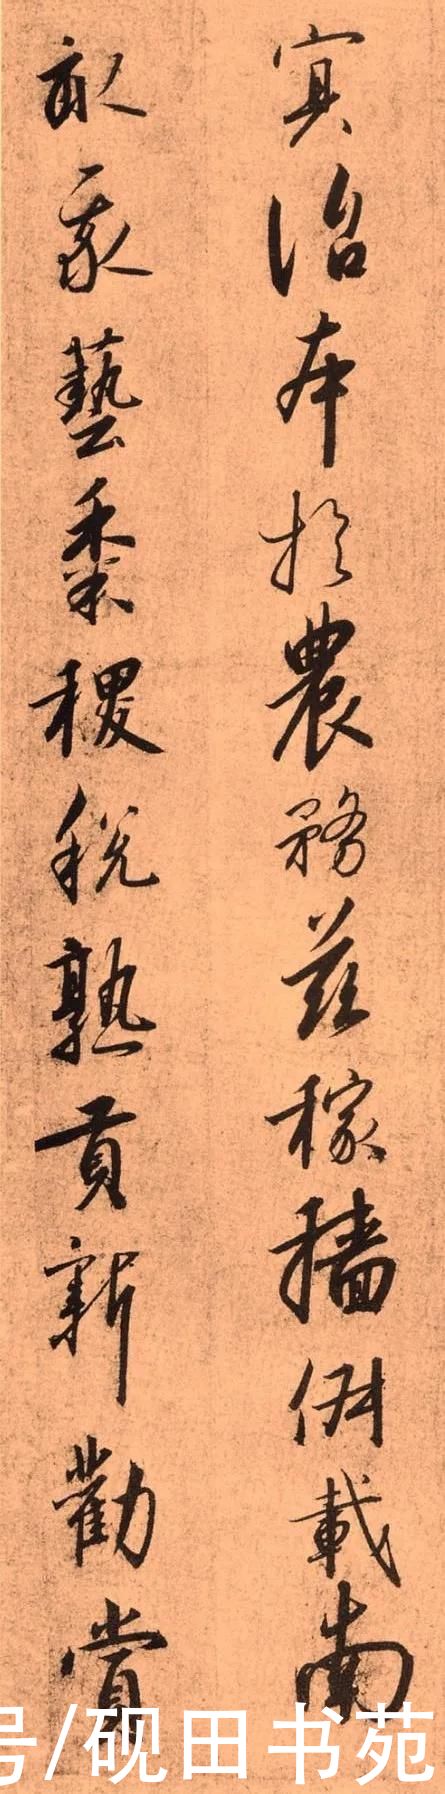 冥治本於農務茲稼穡俶載南
畝我藝黍稷稅熟貢新勸賞
号/砚田书苑